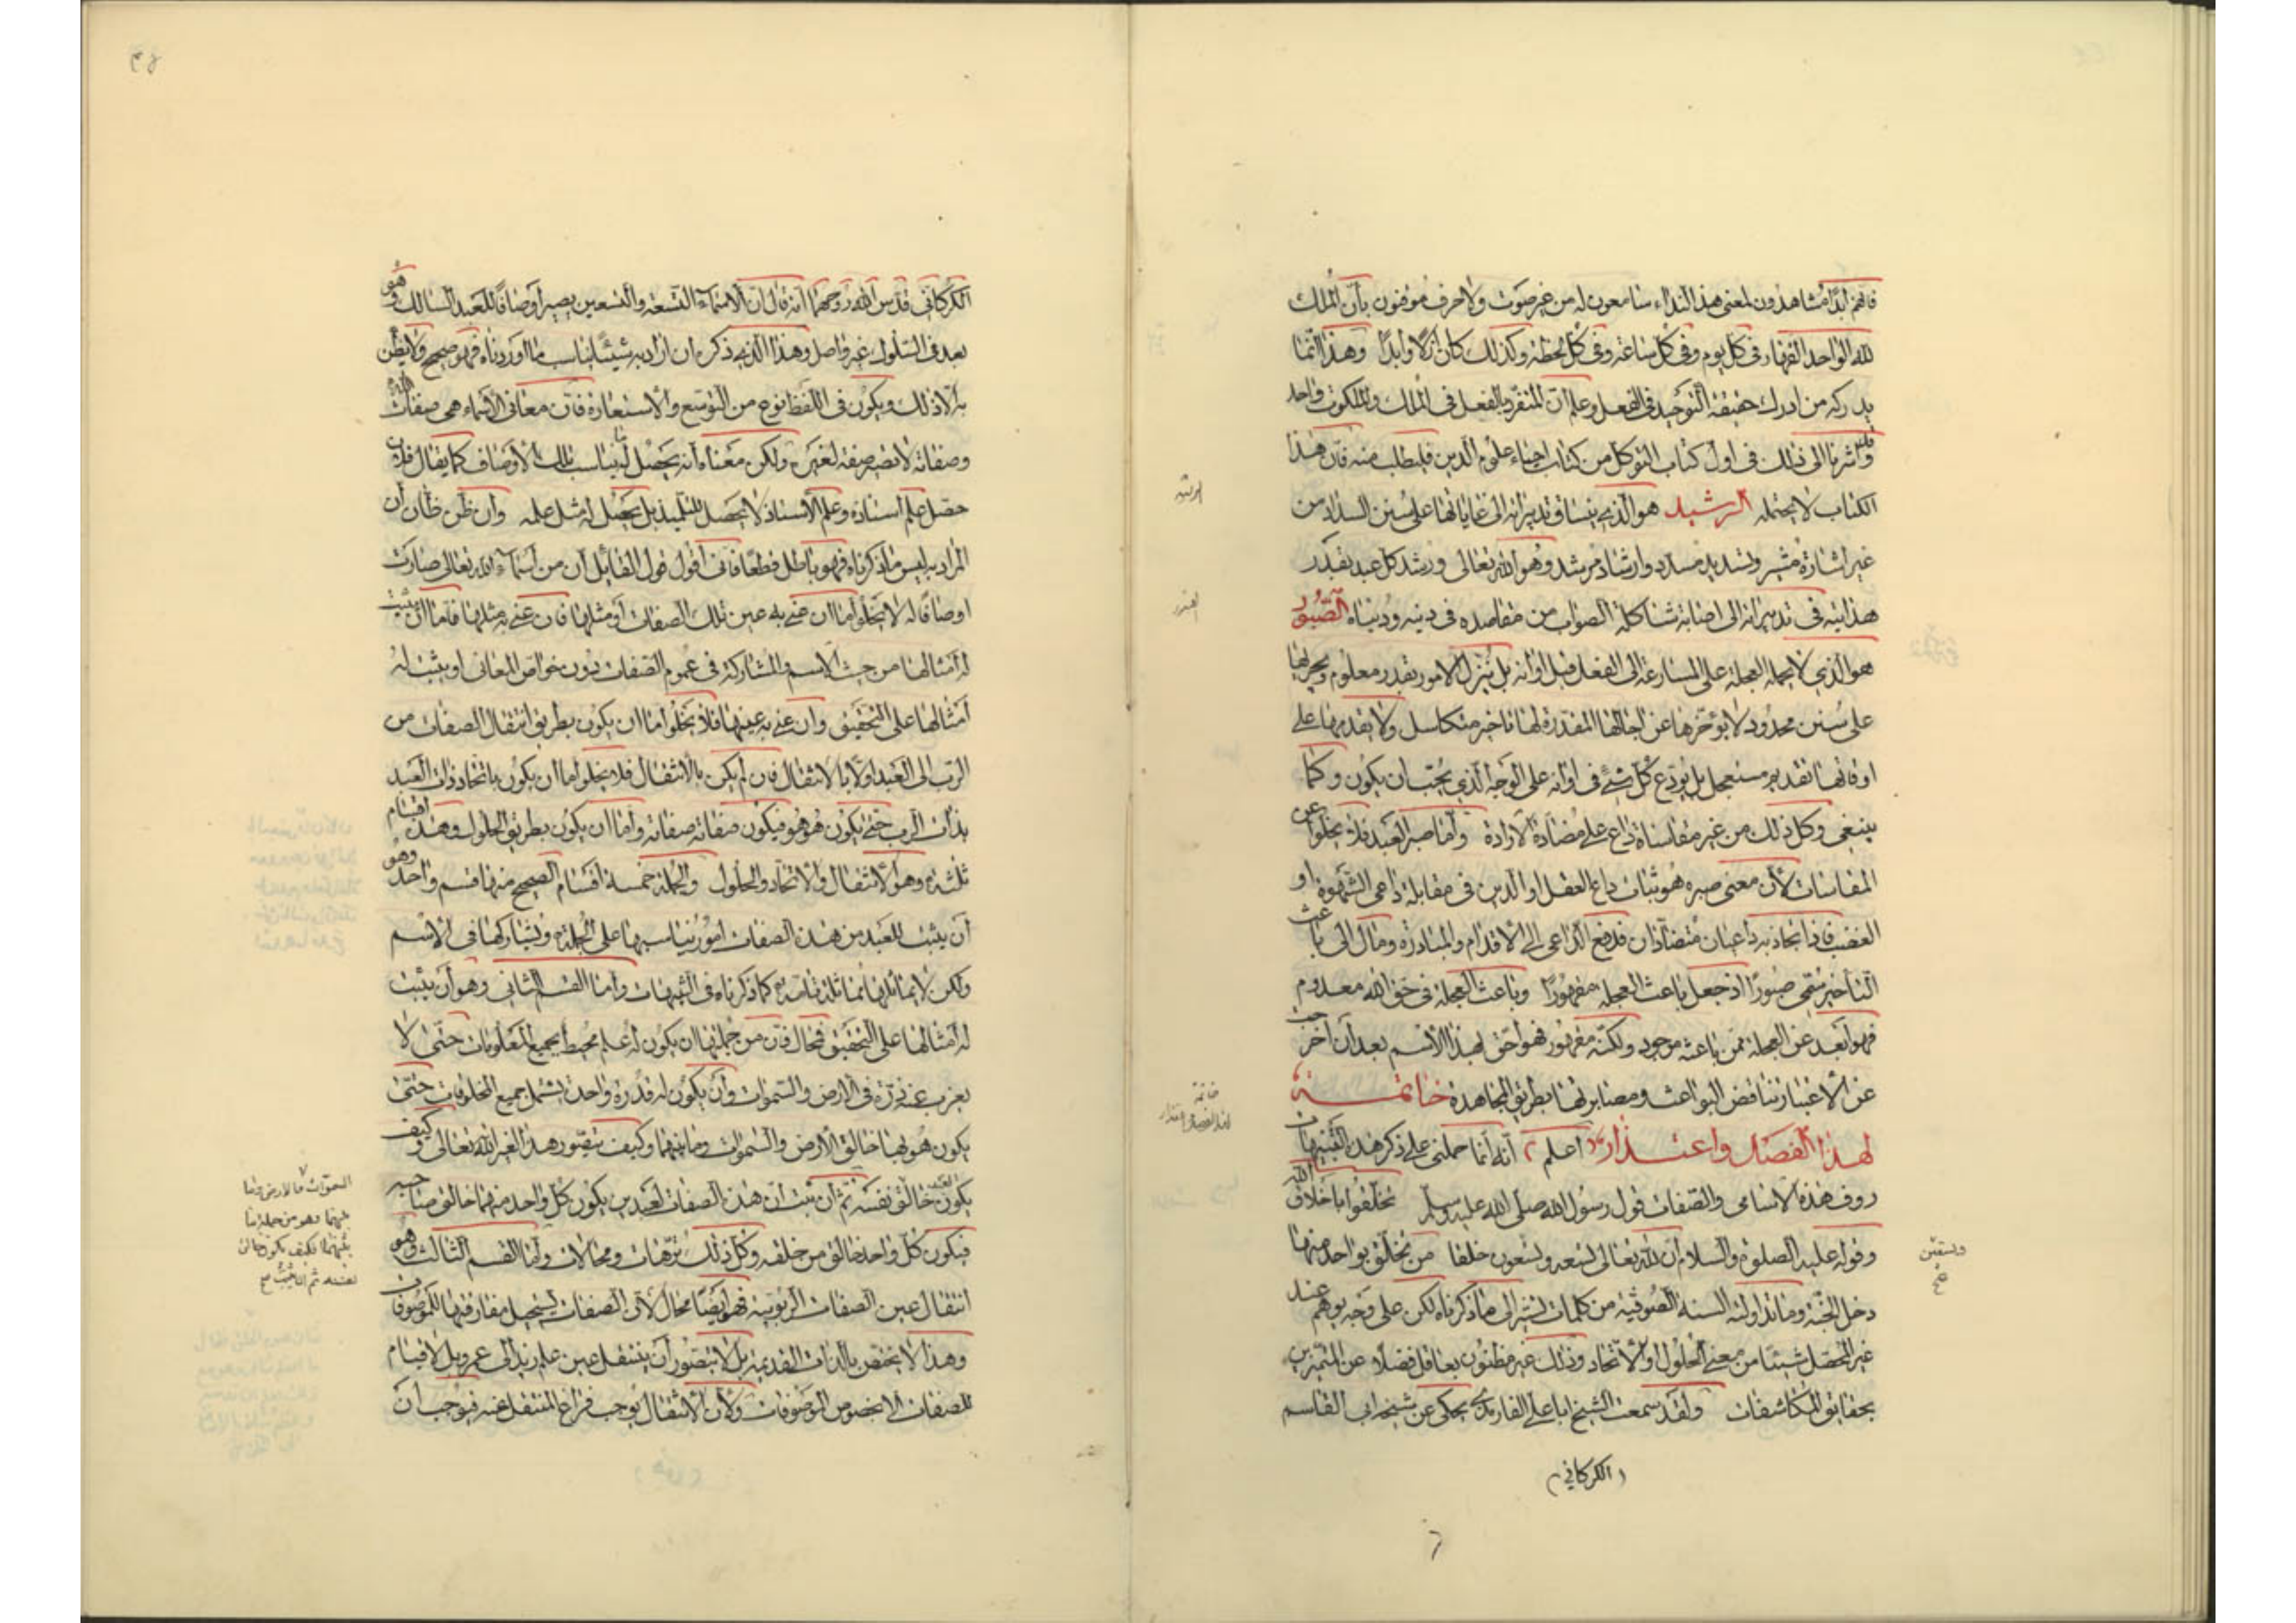 فانهم ابدا مشاهدون لمعنى هذا النداء سامعون له من غير صوت ولا حرف موقنون بان الملك
لله الواحد القهار فى كل يوم وفى كل ساعة وفى كل لحظة وكذلك كان ازلا وابدا وهذا انما
يدركه من ادرك حقيقة التوحيد فى الفعل وعلم ان المنفرد بالفعل فى الملك والملكوت واحد
وقد اشرنا الى ذلك فى اول كتاب التوكل من كتاب احياء علوم الدين فليطلب منه فان هذا
الكتاب لا يحتمله الرشيد هو الذى ينساق تدبيراته الى غاياتها على سنن السداد من
غير اشارة مشير وتسديد مسدد وارشاد مرشد وهو الله تعالى ورشد كل عبد بقدر
هدايته فى تدبيراته الى اصابة شاكلة الصواب من مقاصده فى دينه ودنياه الصبور
هو الذي لا يحمله العجلة على المسارعة الى الفعل قبل اوانه بل ينزل الامور بقدر معلوم ويجريها
على سنن محدود لا يؤخرها عن اجالها المقدرة لها تاخير متكاسل ولا يقدمها على
اوقاتها تقديم مستعجل بل يودع كل شئ فى اوانه على الوجه الذي يجب ان يكون وكما
ينبغى وكل ذلك من غير مقاساة داع على مضادة الارادة واما صبر العبد فلا يخلوا عن
المقاسات لان معنى صبره هو ثبات داع العقل او الدين فى مقابلة داعى الشهوة او
الغضب فاذا تجاذبه داعيان متضادان فدفع الداعى الى الاقدام والمبادرة ومال الى باعث
التاخير سمى صبورا اذ جعل باعث العجلة مقهورا وباعث العجلة فى حق الله معدوم
فهو ابعد عن العجلة ممن باعثه موجود ولكنه مقهور فهو احق بهذا الاسم بعد ان اخرجت
عن الاعتبار تناقض البواعث ومصابرتها بطريق المجاهدة خاتمة
لهذا الفصل واعتذار اعلم انه انما حملنى على ذكر هذه التنبيهات
ردف هذه الاسامى والصفات قول رسول الله صلى الله عليه وسلم تخلقوا باخلاق الله
وقوله عليه الصلوة والسلام ان لله تعالى تسعة وتسعون خلقا من تخلق بواحد منها
دخل الجنة وما تداولته السنة الصوفية من كلمات تشير الى ما ذكرناه لكن على وجه يوهم عند
غير المحصل شيئا من معنى الحلول او الاتحاد وذلك غير مظنون بعاقل فضلا عن المتميزين
بحقايق المكاشفات ولقد سمعت الشيخ ابا على الفارمدى يحكى عن شيخه ابى القاسم
(الكركاني)
خاتمة
وتسعين
صح
الكركانى قدس الله روحهما انه قال ان الاسماء التسعة والتسعين يصير اوصافا للعبد السالك وهو
بعد فى السلوك غير واصل وهذا الذى ذكره ان اراد به شيئا يناسب ما اوردناه فهو صحيح ولا يظن
به الا ذلك ويكون فى اللفظ نوع من التوسع والاستعارة فان معانى الاسماء هى صفات الله
وصفاته لا تصير صفة لغيره ولكن معناه انه يحصل له ما يناسب تلك الاوصاف كما يقال فلان
حصل علم استاذه وعلم الاستاذ لا يحصل للتلميذ بل يحصل له مثل علمه وان ظن ظان ان
المراد به ليس ما ذكرناه فهو باطل قطعا فانى اقول قول القائل ان من اسماء الله تعالى صارت
اوصافا له لا يخلو اما ان عنى به عين تلك الصفات او مثلها فان عنى به مثلها فاما ان يثبت
له امثالها من حيث الاسم والمشاركة فى عموم الصفات دون خواص المعانى او يثبت له
امثالها على التحقيق وان عنى به عينها فلا يخلو اما ان يكون بطريق انتقال الصفات من
الرب الى العبد او لا بالانتقال فان لم يكن بالانتقال فلا يخلوا اما ان يكون باتحاد ذات العبد
بذات الرب حتى يكون هو هو فيكون صفاته صفاته واما ان يكون بطريق الحلول وهذه اقسام
ثلثة وهو الانتقال والاتحاد والحلول والجملة خمسة اقسام الصحيح منها قسم واحد وهو
ان يثبت للعبد من هذه الصفات امور يناسبها على الجملة ويشاركها فى الاسم
ولكن لا يماثلها مماثلة تامة كما ذكرناه فى التنبيهات واما القسم الثانى وهو ان يثبت
له امثالها على التحقيق فمحال فان من جملتها ان يكون له علم محيط بجميع المعلومات حتى لا
يعزب عنه ذرة فى الارض والسموات وان يكون له قدرة واحدة يشمل جميع المخلوقات حتى
يكون هو بها خالق الارض والسموات وما بينهما وكيف يتصور هذا لغير الله تعالى وكيف
يكون العبد خالق نفسه ثم ان ثبت ان هذه الصفات لعبدين يكون كل واحد منهما خالق صاحبه
فيكون كل واحد خالق من خلقه وكل ذلك ترهات ومحالات واما القسم الثالث وهو
انتقال عين الصفات الربوبية فهو ايضا محال لان الصفات يستحيل مفارقتها للموصوفات
وهذا لا يختص بالذات القديمة بل لا يتصور ان ينتقل عين علم زيد الى عمرو بل لا قيام
للصفات الا بخصوص الموصوفات ولان الانتقال يوجب فراغ المنتقل عنه فيوجب ان
السموات والارض وما
بينهما وهو من جملة ما
بينهما فكيف يكون خالق
نفسه ثم ان ثبت صح